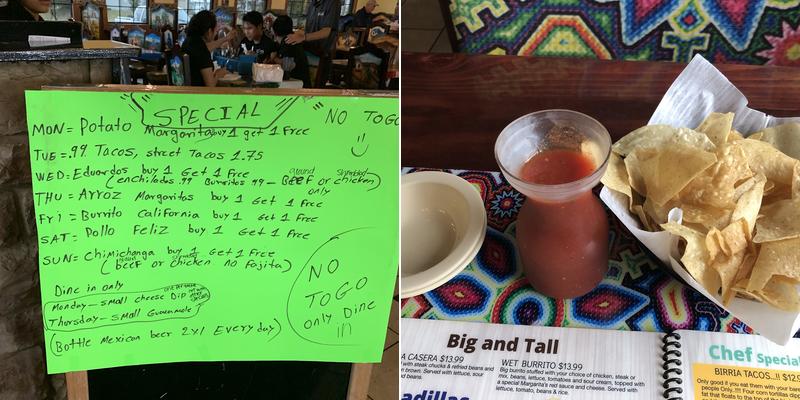 SPECIAL
NO TOGO
MON= Potato Margarita buy 1 get 1 Free
TUE=.99 Tacos, street Tacos 1.75
WED= Eduardos buy 1 Get 1 Free
ground Shredded
(enchiladas .99 Burritos 99 - BEEF or chicken)
only
THU= Arroz Margaritas buy 1 get 1 Free
Fri= Burrito California buy 1 get 1 Free
SAT= Pollo Feliz buy 1 Get 1 Free
SUN= Chimichanga buy 1 Get 1 Free
(BEEF or chicken no Fajita)
Dine in only
Monday- small cheese Dip
Thursday- small Guacamole
(Bottle Mexican beer 2x1 Every day)
NO
TOGO
only Dine
in
Big and Tall
A CASERA $13.99
with steak chucks & refried beans and
n brown. Served with lettuce, sour
nd beans.
WET BURRITO $13.99
Big burrito stuffed with your choice of chicken, steak or
mix, beans, lettuce, tomatoes and sour cream, topped with
a special Margarita's red sauce and cheese. Served with
lettuce, tomato, beans & rice.
adillas
Chef Special
BIRRIA TACOS..!! $12.9
Only good if you eat them with your bare
people Only..!!!! Four corn tortillas dipp
fat that floats to the top of the b